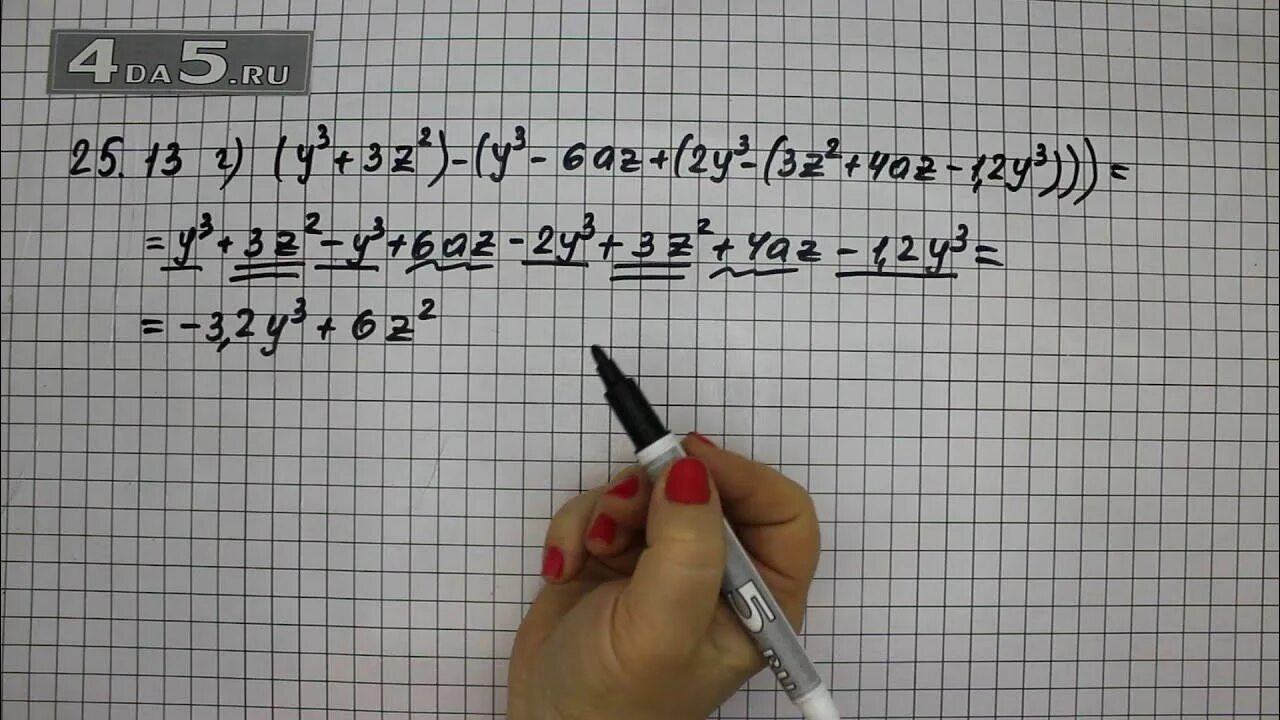 4DA5.RU
25.13 г) (y³ + 3z²) - (y³ - 6az + (2y³ - (3z² + 4az - 1,2y³))) =
= y³ + 3z² - y³ + 6az - 2y³ + 3z² + 4az - 1,2y³ =
= -3,2y³ + 6z²
5.RU